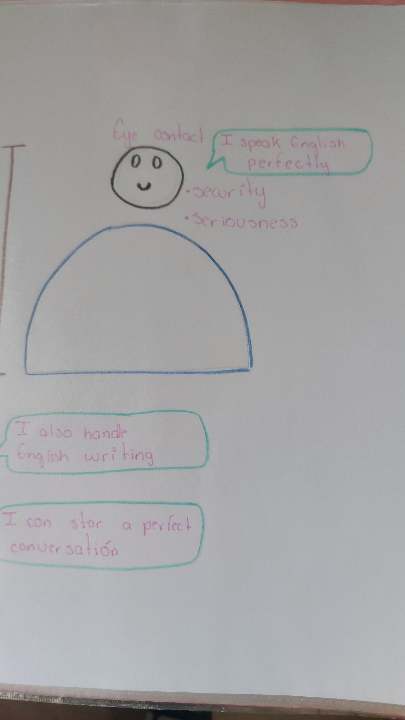 Eye contact
I speak English
perfectly
•security
•seriousness
I also handle
English writing
I can star a perfect
conversatión